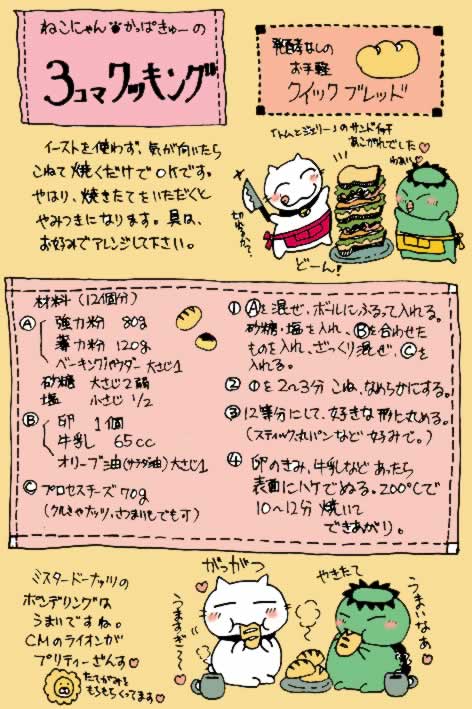 ねこにゃん かっぱきゅーの
3コマクッキング
発酵なしの
お手軽
クイックブレッド
イーストを使わず、気が向いたら
こねて焼くだけでOKです。
やはり、焼きたてをいただくと
やみつきになります。具は、
お好みでアレンジして下さい。
「トムとジェリー」のサンドイッチ
あこがれでした♡
わぁい♡
どーん!
材料(12個分)
Ⓐ 強力粉 80g
薄力粉 120g
ベーキングパウダー 大さじ1
砂糖 大さじ2弱
塩 小さじ1/2
Ⓑ 卵 1個
牛乳 65cc
オリーブ油(サラダ油)大さじ1
Ⓒ プロセスチーズ70g
(クルミやナッツ、さつまいもでも可)
① Ⓐを混ぜ、ボールにふるって入れる。
砂糖・塩を入れ、Ⓑを合わせた
ものを入れ、ざっくり混ぜ、Ⓒを
入れる。
② ①を2〜3分こね、なめらかにする。
③ 12等分にして、好きな形に丸める。
(スティック、丸パンなどお好みで。)
④ 卵のきみ、牛乳などあったら
表面にハケでぬる。200℃で
10〜12分焼いて
できあがり。
ミスタードーナッツの
ポンデリングは
うまいですね。
CMのライオンが
プリティーざんす♡
たてがみを
もちもちくってます♡
がっがつ
うますぎ〜〜
やきたて
うまいなぁ